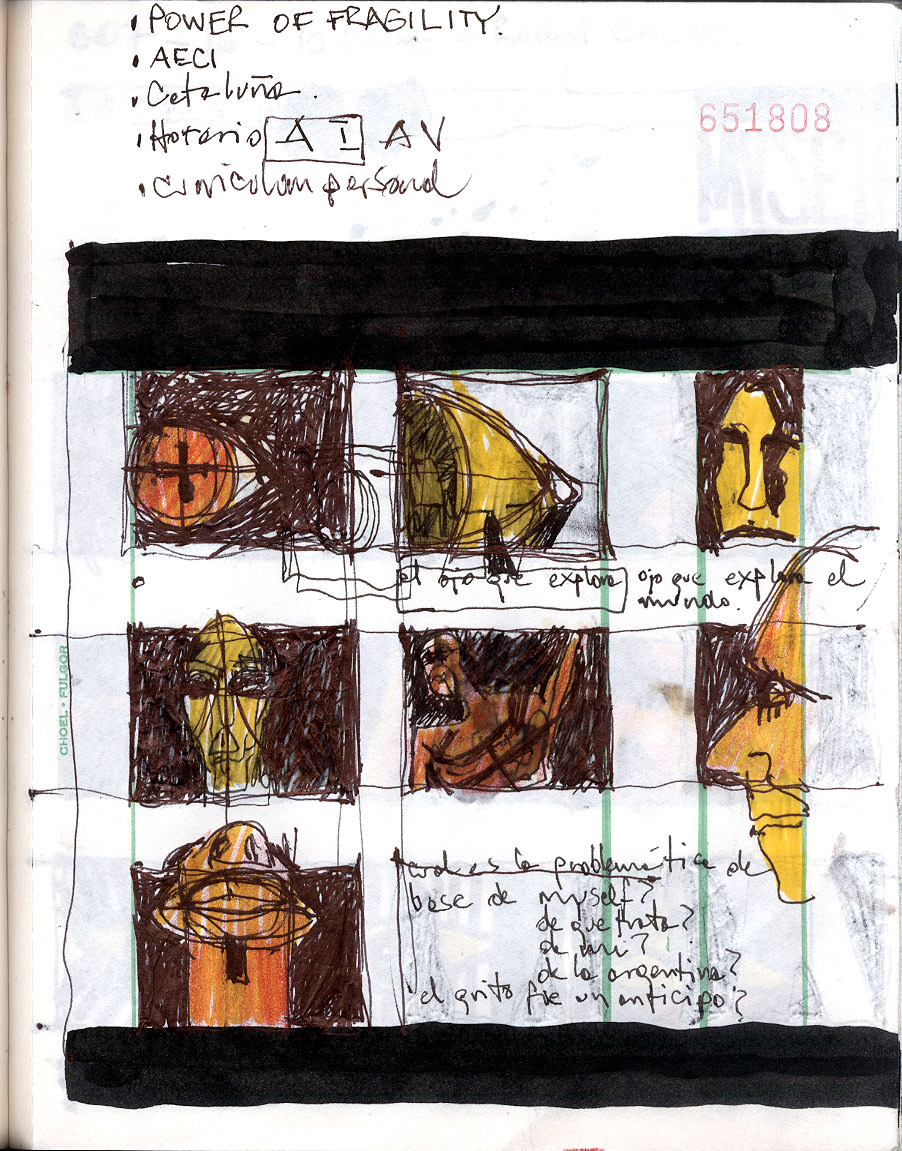 • POWER OF FRAGILITY.
• AECI
• Cataluña.
• Horario A I AV
• Curriculum personal
651808
el ojo que explora ojo que explora el
mundo.
CHOEL • FULGOR
cual es la problemática de
base de myself?
de que trata?
de mi?
de la argentina?
"el grito fue un anticipo"?